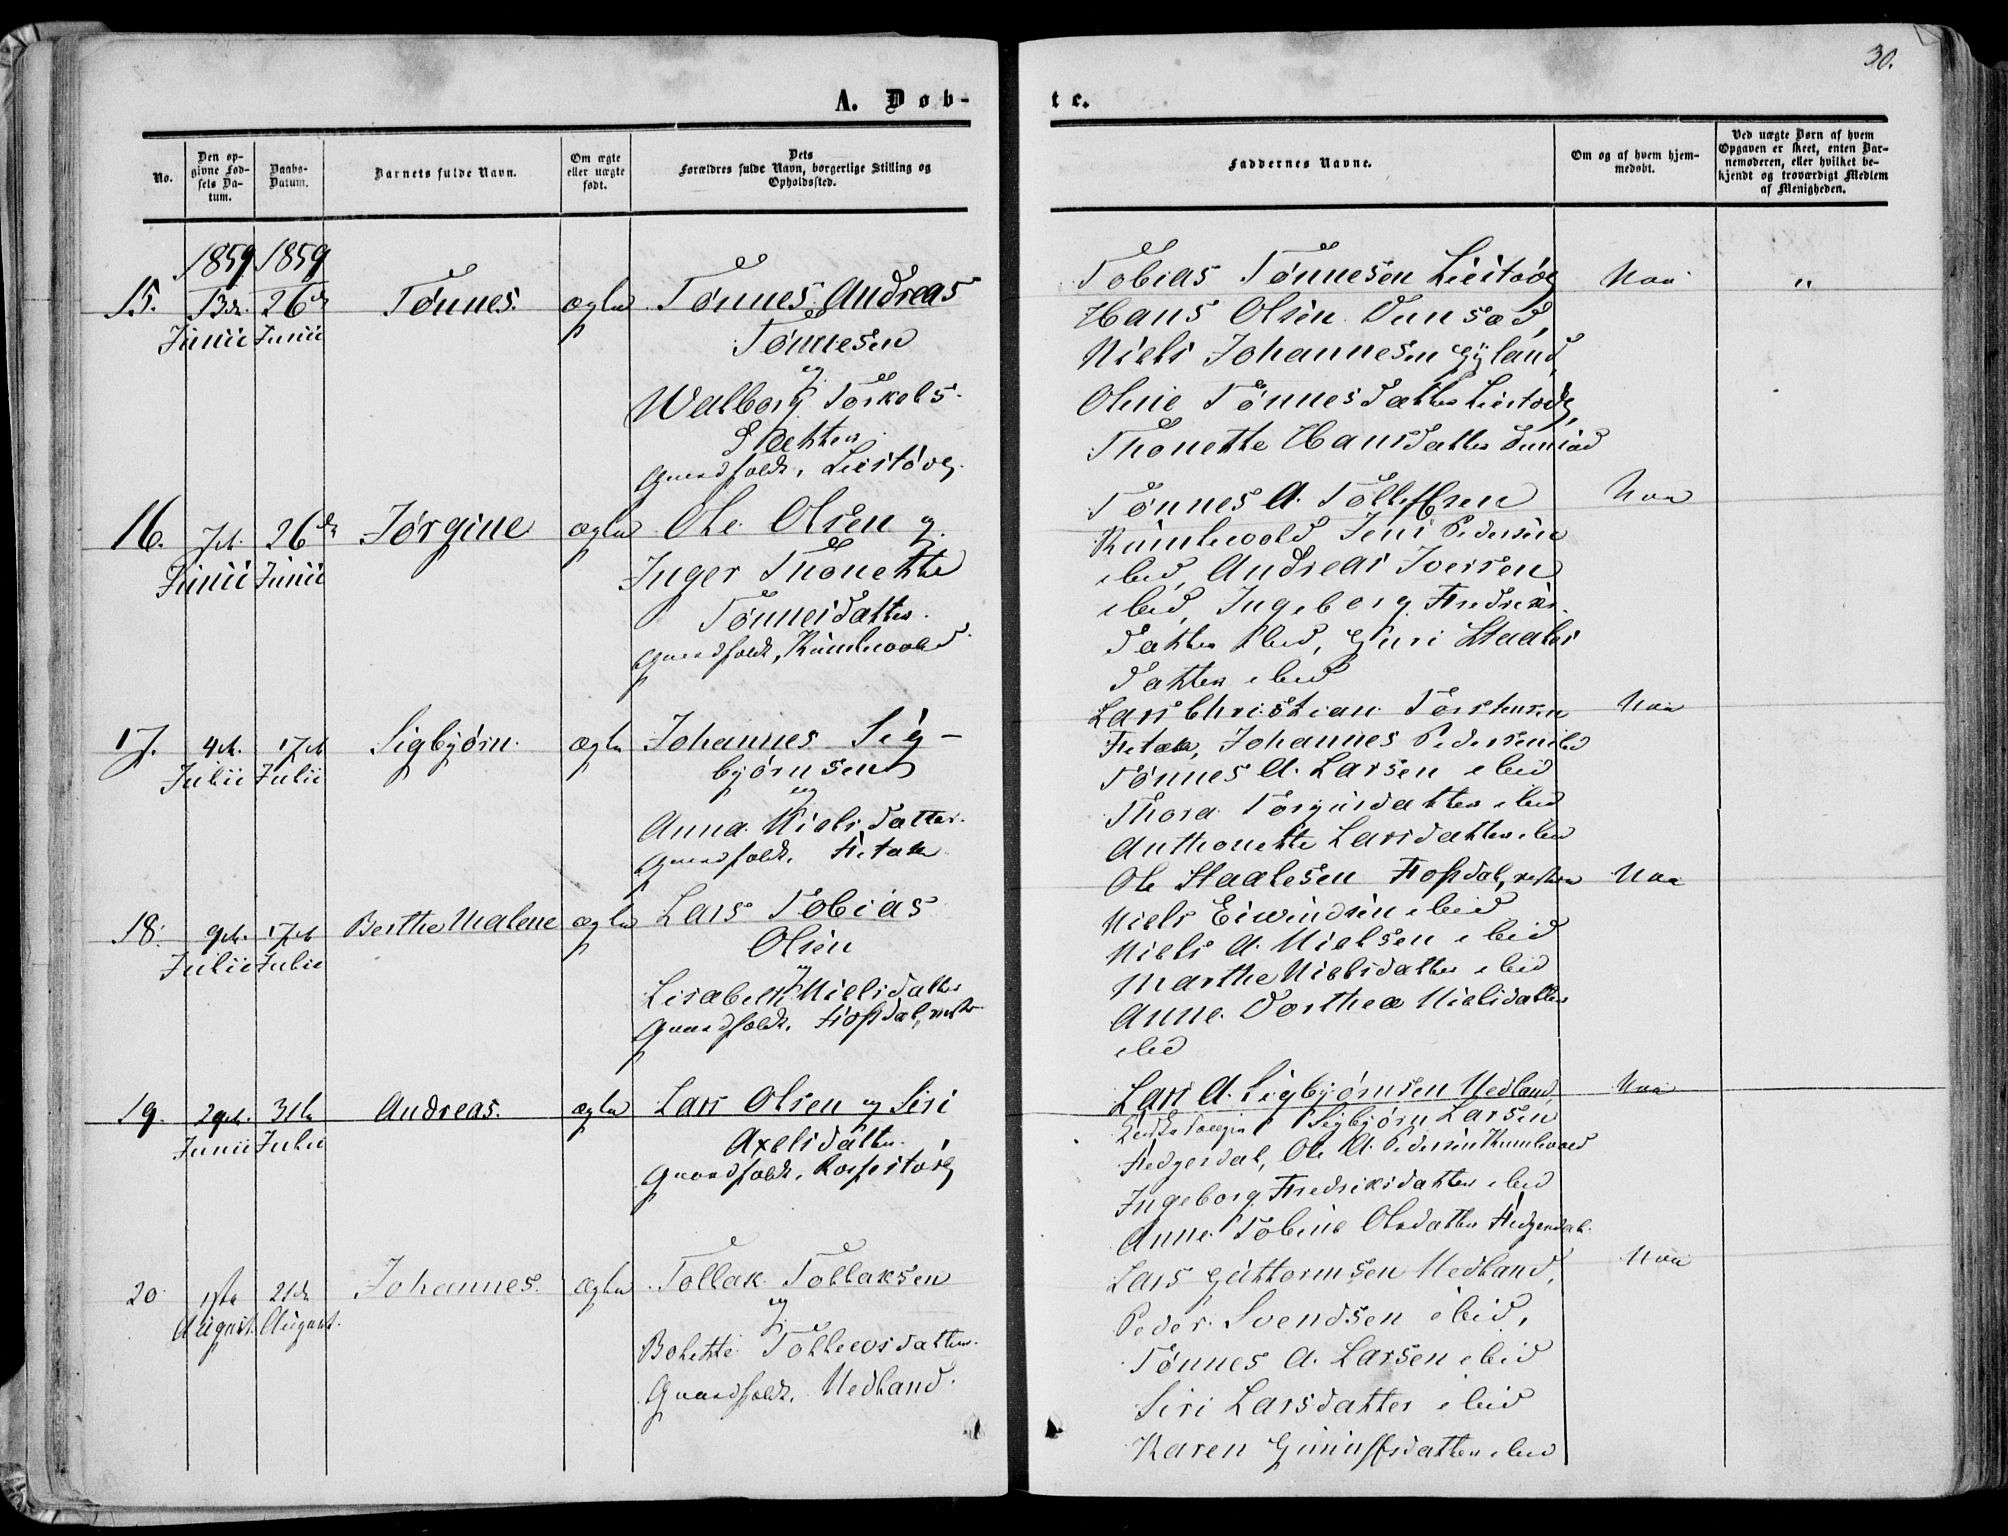 30.
A. Døb-
te.
No.
Den op-
givne Fød-
sels Da-
tum.
Daabs-
Datum.
Barnets fulde Navn.
Om ægte
eller uægte
født.
Dets
Forældres fulde Navn, borgerlige Stilling og
Opholdssted.
Faddernes Navne.
Om og af hvem hjem-
medøbt.
Ved uægte Børn af hvem
Opgaven er skeet, enten Bar-
nemoderen, eller hvilket be-
kjendt og troværdigt Medlem
af Menigheden.
1859 1859
15.
13de
Junii
26de
Junii
Tønnes.
ægte
Tønnes Andreas
Tønnesen
og
Walborg Torkels-
datter
Gaardfolk, Liestøe
Tobias Tønnesen Liestøe
Hans Olsen Dunsæd,
Niels Johannesen Gyland,
Oline Tønnesdatter Liestøe,
Thonette Hansdatter Dunsæd
Nei
"
16.
7de
Junii
26de
Junii
Jørgine
ægte
Ole Olsen og
Inger Thonette
Tønnesdatter.
Gaardfolk,
Tønnes A. Tollefsen
Jens Pedersen
ibid, Andreas Iversen
ibid, Ingeborg Fredriks-
datter ibid, Guri Staales
datter ibid
Nei
17.
4de
Julii
17de
Julii
Sigbjørn.
ægte
Johannes Sig-
bjørnsen
og
Anna Nielsdatter.
Gaardfolk,
Lars Christian Torstensen
Johannes Pedersen ibid
Tønnes A. Larsen ibid
Thora Torgiusdatter ibid
Anthonette Larsdatter ibid
Nei
18.
9de
Julii
17de
Julii
Berthe Malene
ægte
Lars Tobias
Olsen
og
Lisabeth Nielsdatter
Gaardfolk, Fiossdal, vestre
Ole Staalesen Fiossdal, vestre
Niels Eiwindsen ibid
Niels A. Nielsen ibid
Marthe Nielsdatter ibid
Anne Dorthea Nielsdatter
ibid
Nei
19.
29de
Junii
31te
Julii
Andreas.
ægte
Lars Olsen og Siri
Axelsdatter.
Gaardfolk,
Lars A. Sigbjørnsen Nedland,
Sigbjørn Larsen
Ole A. Pedersen
Ingeborg Fredriksdatter ibid
Anne Tobine Olsdatter
Nei
20
1ste
August.
21de
August.
Johannes.
ægte
Tollak Tollaksen
og
Bolette Tollevsdatter.
Gaardfolk, Nedland.
Lars Guttormsen Nedland,
Peder Svendsen ibid,
Tønnes A. Larsen ibid
Siri Larsdatter ibid
Karen Gunulfsdatter ibid
Nei